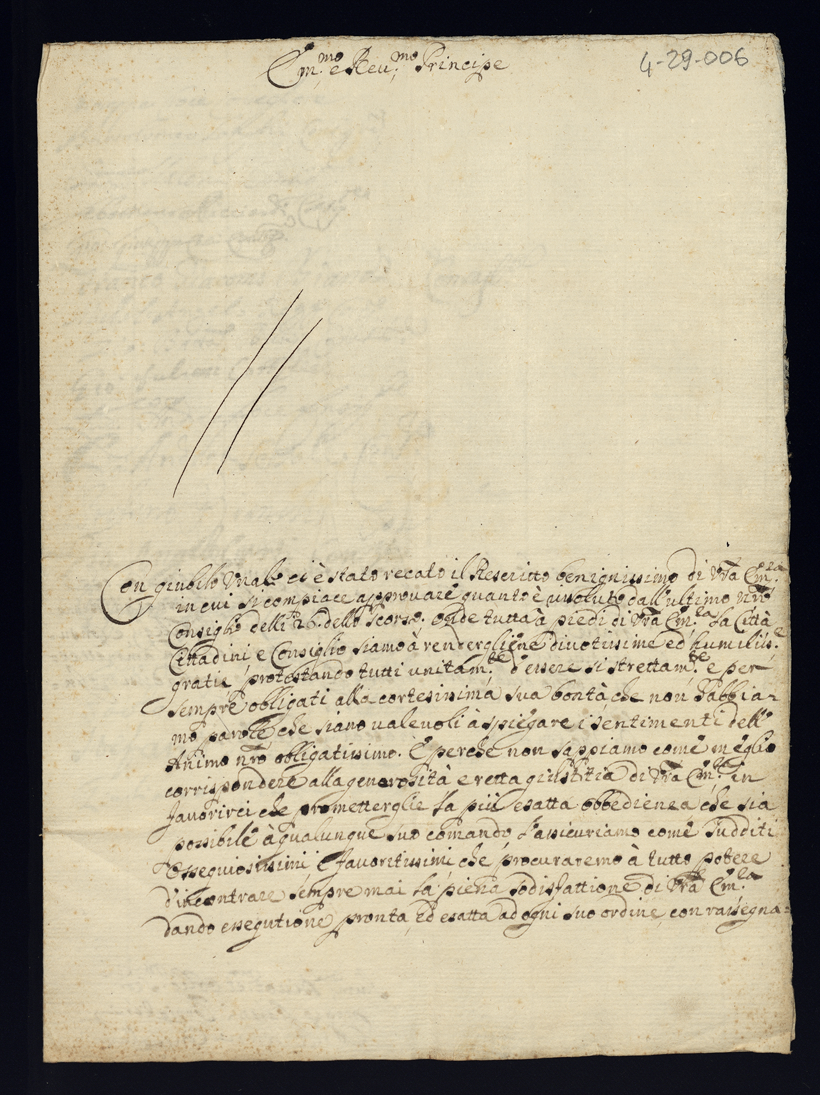 Em.mo e Reu.mo Principe
4-29-006
Con giubilo uguale ci è stato recato il Rescritto benignissimo di Vra Em.za
in cui si compiace approuare quanto è risoluto dall'ultimo nro
Consiglio delli 26. dello scorso. onde tutta à piedi di Vra Em.za la Città
Cittadini e Consiglio siamo à rendergliene diuotissime ed humiliss.e
gratie protestando tutti unitam.te d'essere si strettam.te e per
sempre obligati alla cortesissima sua bontà che non habbia-
mo parole che siano ualeuoli à spiegare i sentimenti dell'
Animo nro obligatissimo. E perche non sappiamo come meglio
corrispondere alla generosità e retta giustitia di Vra Em.za in
fauorirci che prometterglie la più esatta obbedienza che sia
possibile à qualunque suo comando l'assicuriamo come sudditi
Ossequiosissimi e fauoritissimi che procuraremo à tutto potere
d'incontrare sempre mai la piena sodisfattione di Vra Em.za
dando essegutione pronta, ed esatta ad ogni suo ordine, con rassegna-